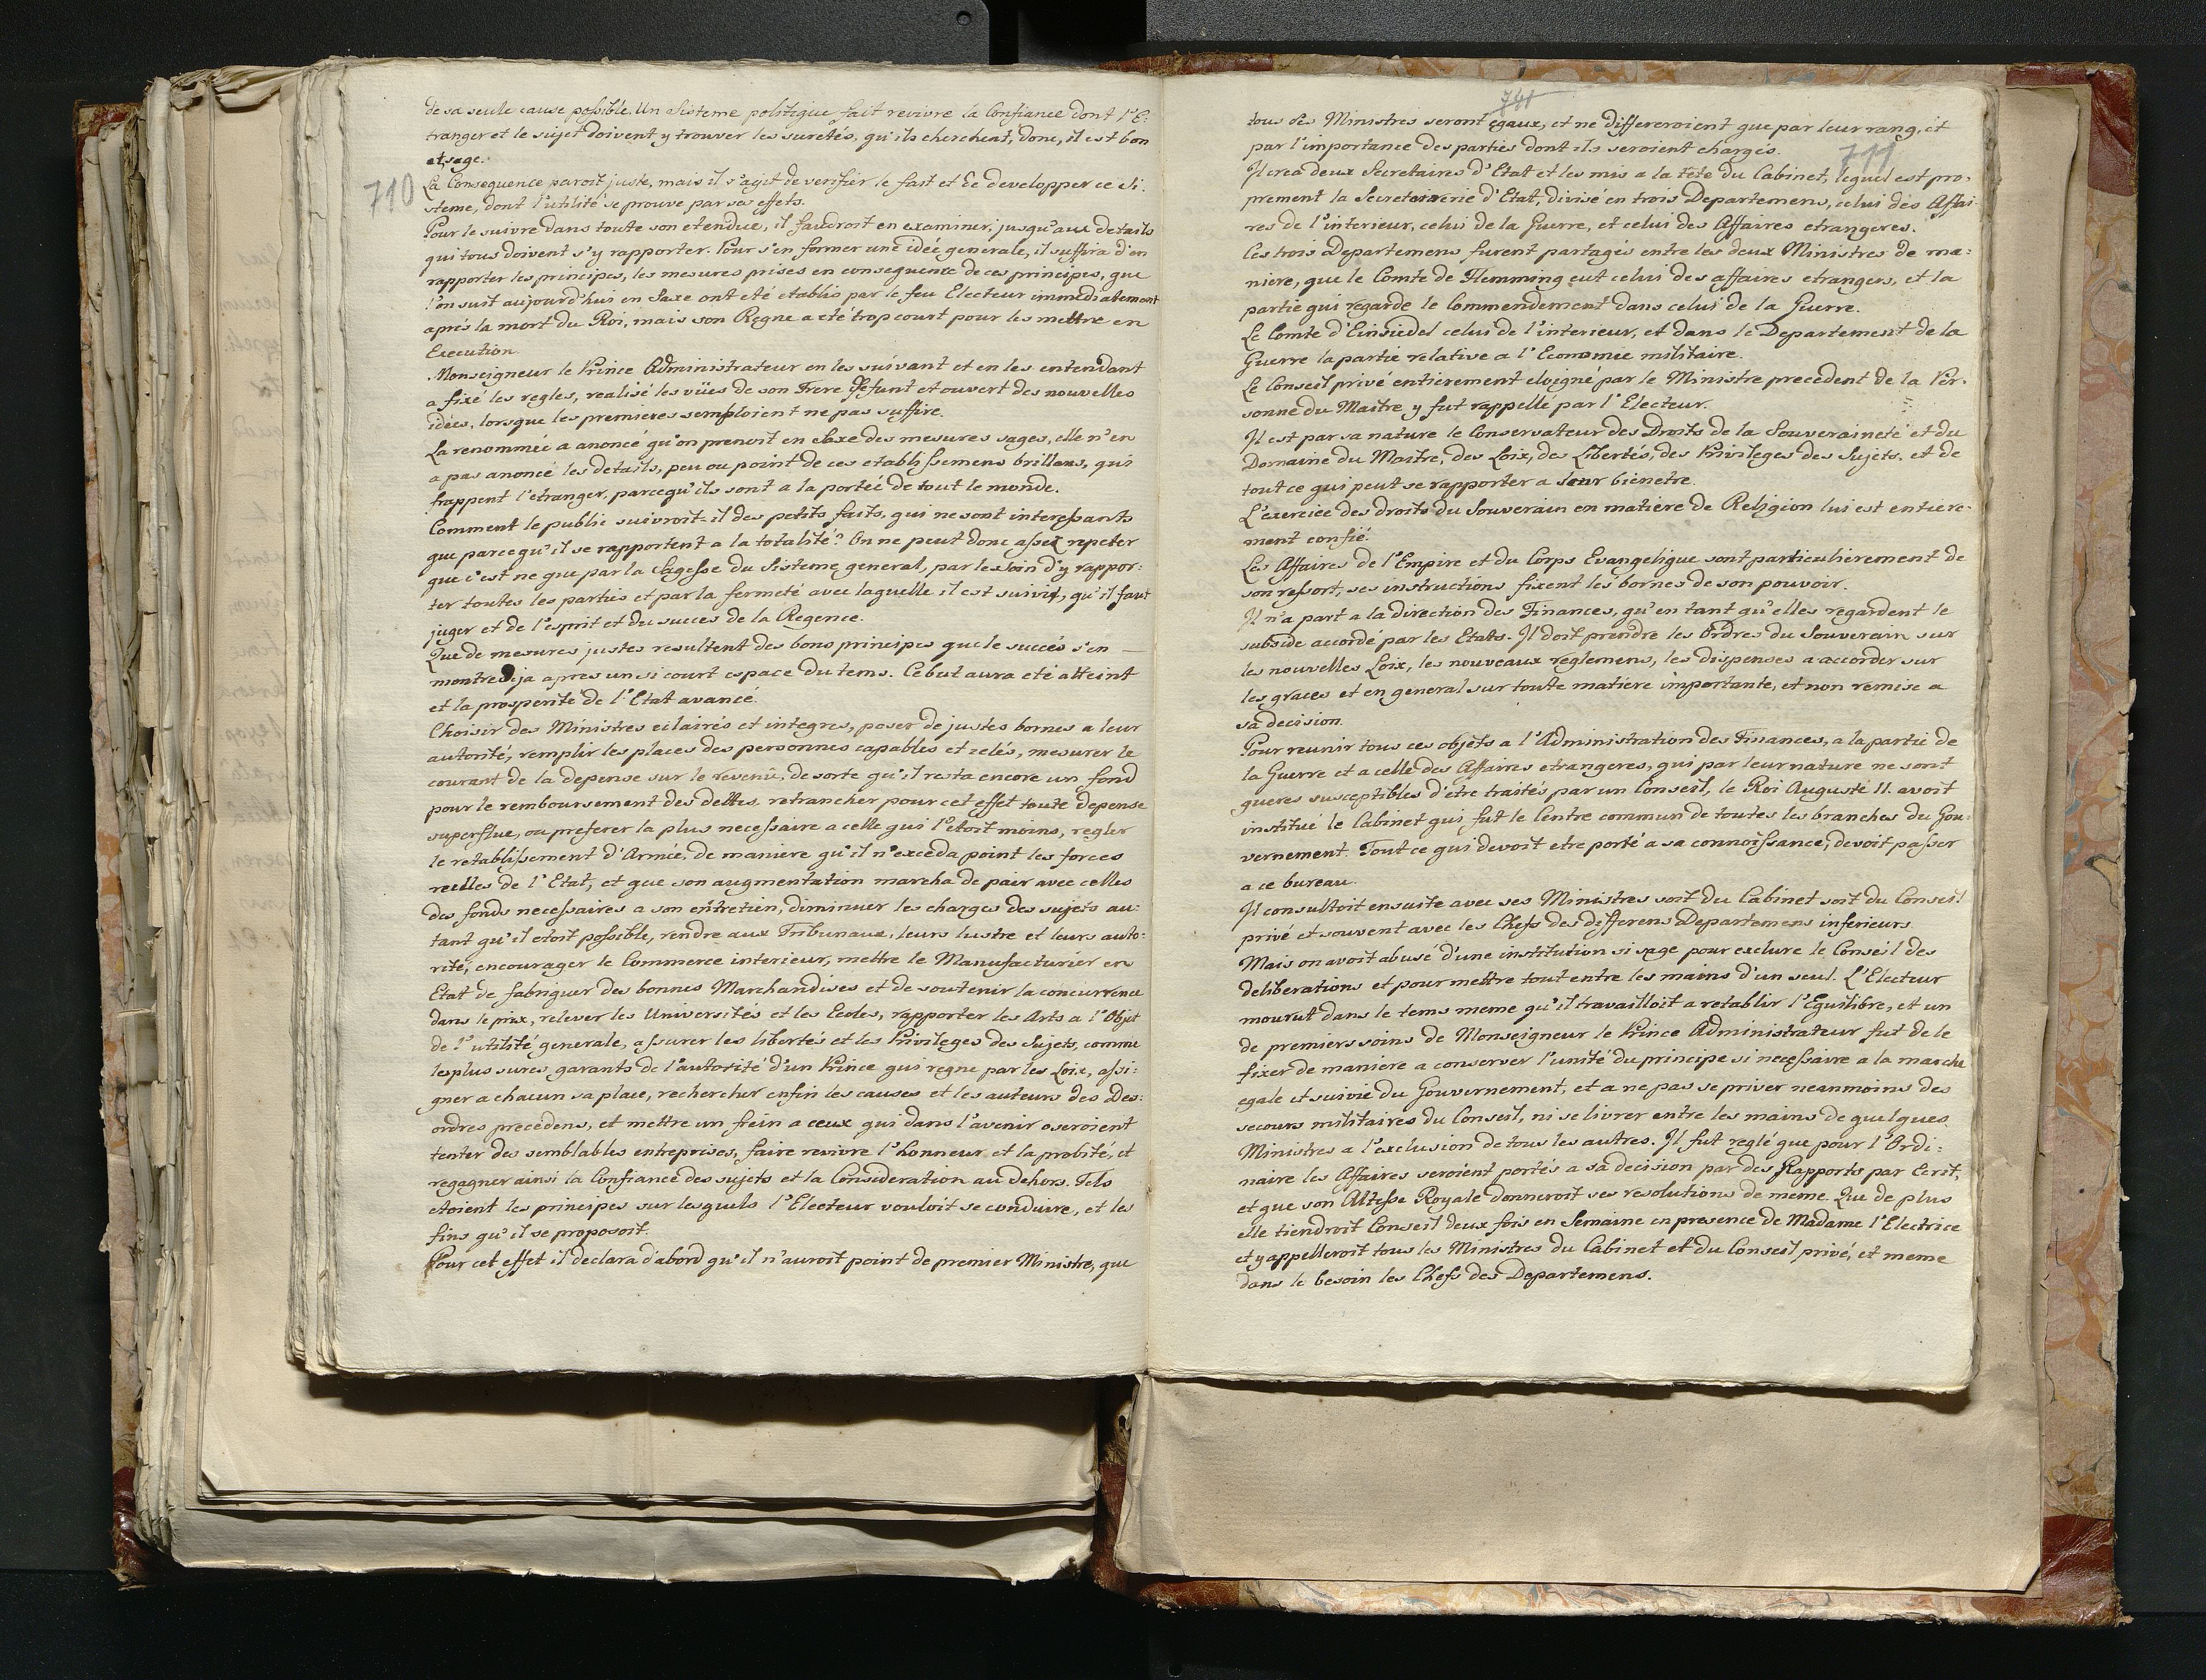 de sa seule cause possible. Un Sisteme politique fait revivre la Confiance dont l'E:
tranger et le sujet doivent y trouver les suretés, qu'ils cherchent, donc, il est bon
et sage.
710
La Consequence paroit juste, mais il s'agit de verifier le fait et de developper ce Si:
steme, dont l'utilité se prouve par ses effets.
Pour le suivre dans toute son etendue, il faudroit en examiner, jusqu'aux details
qui tous doivent s'y rapporter. Pour s'en former une idée generale, il suffira d'en
rapporter les principes, les mesures prises en consequence de ces principes, que
l'on suit aujourd'hui en Saxe ont eté etablis par le feu Electeur immediatement
aprés la mort du Roi, mais son Regne a eté trop court pour les mettre en
Execution.
Monseigneur le Prince Administrateur en les suivant et en les entendant
a fixé les regles, realisé les vües de son Frere defunt et ouvert des nouvelles
idées, lorsque les premieres sembloient ne pas suffire.
La renommée a anoncé qu'on prenoit en Saxe des mesures sages, elle n'en
a pas anoncé les details, peu ou point de ces etablissemens brillans, qui
frappent l'etranger, parcequ'ils sont a la portée de tout le monde.
Comment le public suivroit-il des petits faits, qui ne sont interessants
que parcequ'il se rapportent a la totalité? On ne peut donc assez repeter
que c'est ne que par la Sagesse du Sisteme general, par le soin d'y rappor:
ter toutes les parties et par la fermeté avec laquelle il est suivit, qu'il faut
juger et de l'esprit et du succes de la Regence.
Que de mesures justes resultent des bons principes que le succés s'en
montre deja apres un si court espace du tems. Ce but aura eté atteint
et la prosperité de l'Etat avancé.
Choisir des Ministres eclairés et integres, poser de justes bornes a leur
autorité, remplir les places des personnes capables et zelés, mesurer le
courant de la depense sur le revenu, de sorte qu'il resta encore un fond
pour le remboursement des dettes, retrancher pour cet effet toute depense
superflue, ou preferer la plus necessaire a celle qui l'etoit moins, regler
le retablissement d'Armée, de maniere qu'il n'exceda point les forces
reelles de l'Etat, et que son augmentation marcha de pair avec celles
des fonds necessaires a son entretien, diminuer les charges des sujets au:
tant qu'il etoit possible, rendre aux Tribunaux, leurs lustre et leurs auto:
rité, encourager le Commerce interieur, mettre le Manufacturier en
Etat de fabriquer des bonnes Marchandises et de soutenir la concurrence
dans le prix, relever les Universités et les Ecoles, rapporter les Arts a l'Objet
de l'utilité generale, assurer les libertés et les Privileges des Sujets, comme
les plus sures garants de l'autorité d'un Prince qui regne par les Loix, assi:
gner a chacun sa place, rechercher enfin les causes et les auteurs des Des:
ordres precedens, et mettre un frein a ceux qui dans l'avenir oseroient
tenter des semblables entreprises, faire revivre l'honneur et la probité, et
regagner ainsi la Confiance des sujets et la Consideration au dehors. Tels
etoient les principes sur lesquels l'Electeur vouloit se conduire, et les
fins qu'il se proposoit.
Pour cet effet il declara d'abord qu'il n'auroit point de premier Ministre, que
741
tous ses Ministres seront egaux, et ne differeroient que par leur rang, et
par l'importance des parties dont ils seroient chargés.
711
Il crea deux Secretaires d'Etat et les mis a la tête du Cabinet, lequel est pro:
prement la Secretairerie d'Etat, divisé en trois Departemens, celui des Affai
res de l'interieur, celui de la Guerre, et celui des Affaires etrangeres.
Ces trois Departemens furent partagés entre les deux Ministres de ma:
niere, que le Comte de Flemming eut celui des affaires etrangers, et la
partie qui regarde le Commendement dans celui de la Guerre.
Le Comte d'Einsiedel celui de l'interieur, et dans le Departement de la
Guerre la partie relative a l'Economie militaire.
Le Conseil privé entierement eloigné par le Ministre precedent de la Per:
sonne du Maitre, y fut rappellé par l'Electeur.
Il est par sa nature le Conservateur des Droits de la Souveraineté et du
Domaine du Maitre, des Loix, des Libertés, des Privileges des Sujets, et de
tout ce qui peut se rapporter a leur bienetre.
L'exercice des droits du Souverain en matiere de Religion lui est entiere:
ment confié.
Les Affaires de l'Empire et du Corps Evangelique sont particulierement de
son ressort, ses instructions fixent les bornes de son pouvoir.
Il n'a part a la direction des Finances, qu'en tant qu'elles regardent le
subside accordé par les Etats. Il doit prendre les Ordres du Souverain sur
les nouvelles Loix, les nouveaux reglemens, les dispenses a accorder sur
les graces et en general sur toute matiere importante, et non remise a
sa decision.
Pour reunir tous ces objets a l'Administration des Finances, a la partie de
la Guerre et a celle des Affaires etrangeres, qui par leur nature ne sont
gueres susceptibles d'etre traités par un Conseil, le Roi Auguste II. avoit
institué le Cabinet qui fut le Centre commun de toutes les branches du Gou:
vernement. Tout ce qui devoit etre porté a sa connoissance, devoit passer
a ce bureau.
Il consultoit ensuite avec ses Ministres soit du Cabinet soit du Conseil
privé et souvent avec les Chefs des differens Departemens inferieurs.
Mais on avoit abusé d'une institution si sage pour exclure le Conseil des
deliberations et pour mettre tout entre les mains d'un seul. L'Electeur
mourut dans le tems meme qu'il travailloit a retablir l'Equilibre, et un
de premiers soins de Monseigneur le Prince Administrateur fut de le
fixer de maniere a conserver l'unité du principe si necessaire a la marche
egale et suivie du Gouvernement, et a ne pas se priver neanmoins des
secours militaires du Conseil, ni se livrer entre les mains de quelques
Ministres a l'exclusion de tous les autres. Il fut reglé que pour l'Ordi:
naire les Affaires seroient portés a sa decision par des Rapports par Ecrit,
et que son Altesse Royale donneroit ses resolutions de meme. Que de plus
elle tiendroit Conseil deux fois en Semaine en presence de Madame l'Electrice
et y appelleroit tous les Ministres du Cabinet et du Conseil privé, et meme
dans le besoin les Chefs des Departemens.